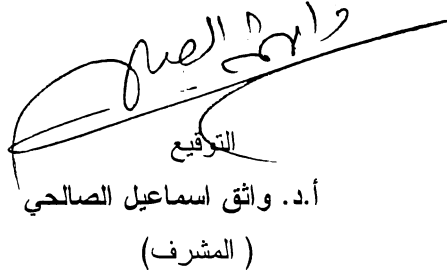 التوقيع
أ.د. واثق اسماعيل الصالحي
( المشرف)